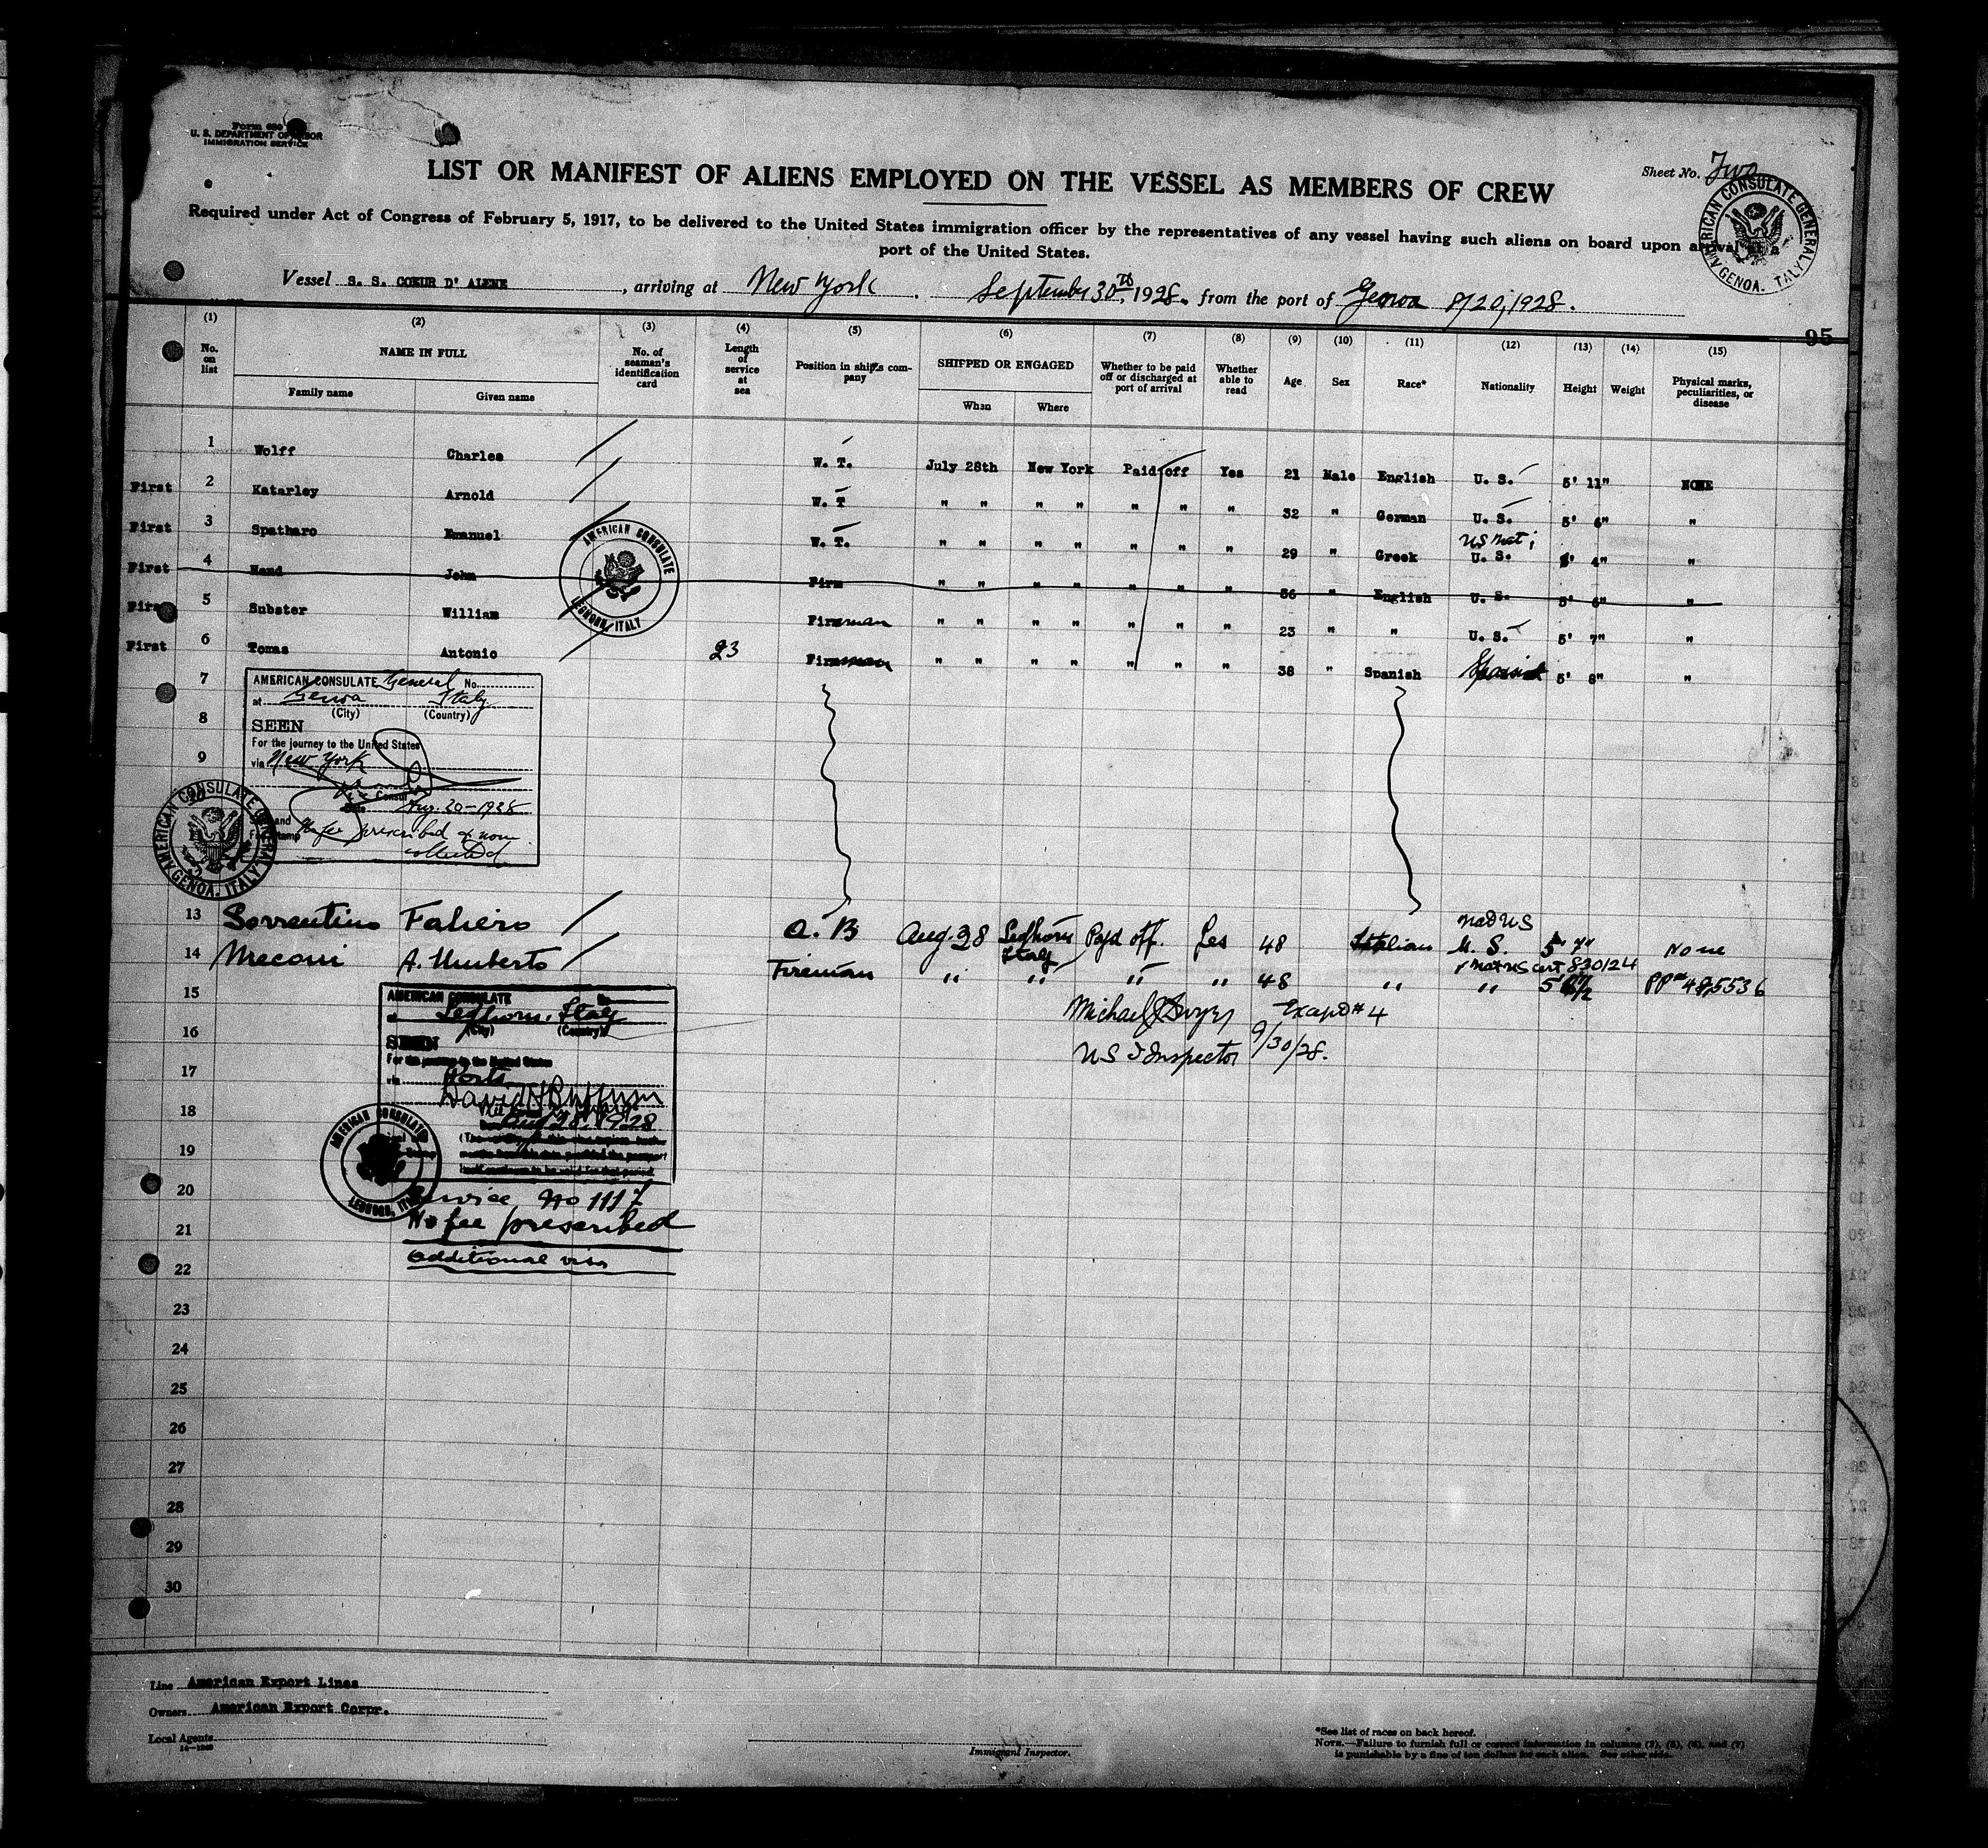 Form 680
U. S. DEPARTMENT OF LABOR
IMMIGRATION SERVICE
Sheet No. Two
LIST OR MANIFEST OF ALIENS EMPLOYED ON THE VESSEL AS MEMBERS OF CREW
Required under Act of Congress of February 5, 1917, to be delivered to the United States immigration officer by the representatives of any vessel having such aliens on board upon arrival at a
port of the United States.
AMERICAN CONSULATE GENERAL GENOA, ITALY
Vessel S. S. COEUR D' ALENE, arriving at New York. September 30th, 1928, from the port of Genoa 8/20, 1928.
95
(1) (2) (3) (4) (5) (6) (7) (8) (9) (10) (11) (12) (13) (14) (15)
No. on list NAME IN FULL Family name Given name No. of seaman's identification card Length of service at sea Position in ship's company SHIPPED OR ENGAGED When Where Whether to be paid off or discharged at port of arrival Whether able to read Age Sex Race* Nationality Height Weight Physical marks, peculiarities, or disease
1 Wolff Charles W. T. July 28th New York Paid off Yes 21 Male English U. S. 5' 11" NONE
First 2 Katarley Arnold W. T " " " " " " " 32 " German U. S. 5' 6" "
US Nat;
First 3 Spatharo Emanuel W. T. " " " " " " " 29 " Greek U. S. 4" "
First 4 Hand John Firm " " " " " " " 36 " English U. S. 5' 6" "
First 5 Subster William Fireman " " " " " " " 23 " " U. S. 5' 7" "
First 6 Tomas Antonio 23 Fireman " " " " " " " 38 " Spanish Spanish 5' 8" "
AMERICAN CONSULATE LEGHORN, ITALY
7
8
9
AMERICAN CONSULATE General No.
at Genoa Italy
(City) (Country)
SEEN
For the journey to the United States
via New York
Vice Consul
Date Aug. 20-1928
No fee prescribed or none
collected
AMERICAN CONSULATE GENERAL GENOA, ITALY
Nat US
13 Sorrentino Faliero A. B Aug. 28 Leghorn Italy Paid off. Yes 48 Italian U. S. 5' 7" None
Nat US Cert 830124
14 Meconi A. Umberto Fireman " " " " 48 " " 5' 6½ PP# 485536
15
16
17
18
19
20
21
22
23
24
25
26
27
28
29
30
Michael J Dwyer
US I Inspector 9/30/28.
AMERICAN CONSULATE No.
at Leghorn, Italy
(City) (Country)
SEEN
For the journey to the United States
via Ports
David H Buffum
Aug 28, 1928
AMERICAN CONSULATE LEGHORN, ITALY
Service No 1117
No fee prescribed
additional visa
Line American Export Lines
Owners American Export Corpr.
Local Agents
Immigrant Inspector.
*See list of races on back hereof.
NOTE.—Failure to furnish full or correct information in columns (2), (5), (6), and (7)
is punishable by a fine of ten dollars for each alien. See other side.